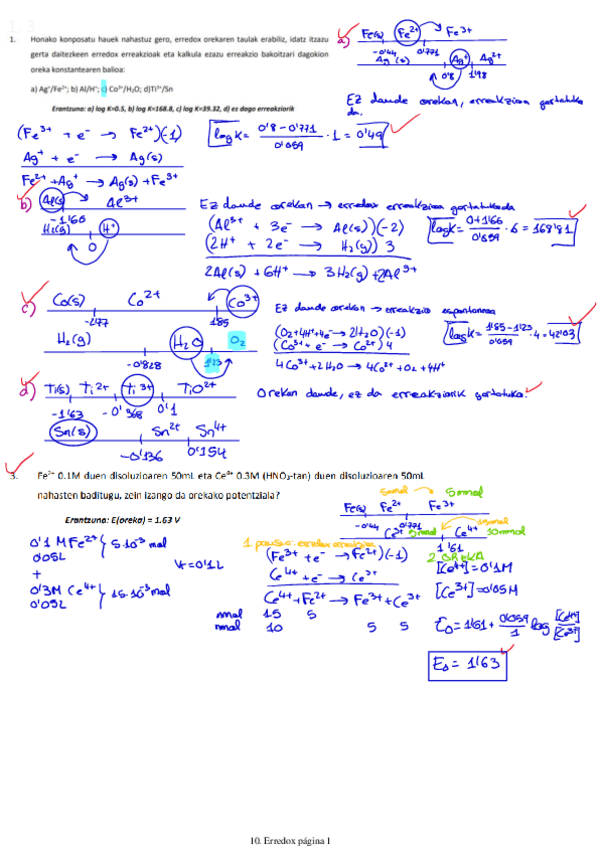 1. Honako konposatu hauek nahastuz gero, erredox orekaren taulak erabiliz, idatz itzazu
gerta daitezkeen erredox erreakzioak eta kalkula ezazu erreakzio bakoitzari dagokion
oreka konstantearen balioa:
a) Ag⁺/Fe²⁺; b) Al/H⁺; c) Co³⁺/H₂O; d)Ti³⁺/Sn
Erantzuna: a) log K=0.5, b) log K=168.8, c) log K=39.32, d) ez dago erreakziorik
a) Fe(s) Fe²⁺ Fe³⁺
-0'44 0'771
Ag(s) Ag⁺ Ag²⁺
0'8 1'98
Ez daude orekan, erreakzioa gertatuko
da.
(Fe³⁺ + e⁻ → Fe²⁺)(-1)
Ag⁺ + e⁻ → Ag(s)
Fe²⁺ + Ag⁺ → Ag(s) + Fe³⁺
log K = 0'8 - 0'771 / 0'059 · 1 = 0'49
b) Al(s) Al³⁺
-1'66
H₂(g) H⁺
0
Ez daude orekan → erredox erreakzioa gertatukoda
(Al³⁺ + 3e⁻ → Al(s))(-2)
(2H⁺ + 2e⁻ → H₂(g)) 3
2Al(s) + 6H⁺ → 3H₂(g) + 2Al³⁺
log K = 0+1'66 / 0'059 · 6 = 168'81
c) Co(s) Co²⁺ Co³⁺
-277 1'85
H₂(g) H₂O O₂
-0'828 1'23
Ez daude orekan → erreakzio espontaneoa
(O₂+4H⁺+4e⁻→2H₂O)(-1)
(Co³⁺ + e⁻ → Co²⁺) 4
4Co³⁺ + 2H₂O → 4Co²⁺ + O₂ + 4H⁺
log K = 1'85-1'23 / 0'059 · 4 = 42'03
d) Ti(s) Ti²⁺ Ti³⁺ TiO²⁺
-1'63 -0'368 0'1
Sn(s) Sn²⁺ Sn⁴⁺
-0'136 0'154
Orekan daude, ez da erreakziorik gertatuko.
3. Fe²⁺ 0.1M duen disoluzioaren 50mL eta Ce⁴⁺ 0.3M (HNO₃-tan) duen disoluzioaren 50mL
nahasten baditugu, zein izango da orekako potentziala?
Erantzuna: E(oreka) = 1.63 V
5mmol 5mmol
Fe(s) Fe²⁺ Fe³⁺
-0'44 0'771
15mmol
Ce³⁺ 5mmol Ce⁴⁺ 10mmol
1'61
0'1 M Fe²⁺
0'05L
5·10⁻³ mol
+
0'3M Ce⁴⁺
0'05L
15·10⁻³ mol
Vt = 0'1L
1. pausua: erredox erreakzioa
(Fe³⁺ + e⁻ → Fe²⁺)(-1)
Ce⁴⁺ + e⁻ → Ce³⁺
Ce⁴⁺ + Fe²⁺ → Fe³⁺ + Ce³⁺
mmol 15 5
mmol 10 5 5
2. OREKA
[Ce⁴⁺] = 0'1M
[Ce³⁺] = 0'05M
E₀ = 1'61 + 0'059 / 1 log [Ce⁴⁺] / [Ce³⁺]
E₀ = 1'63
10. Erredox página 1